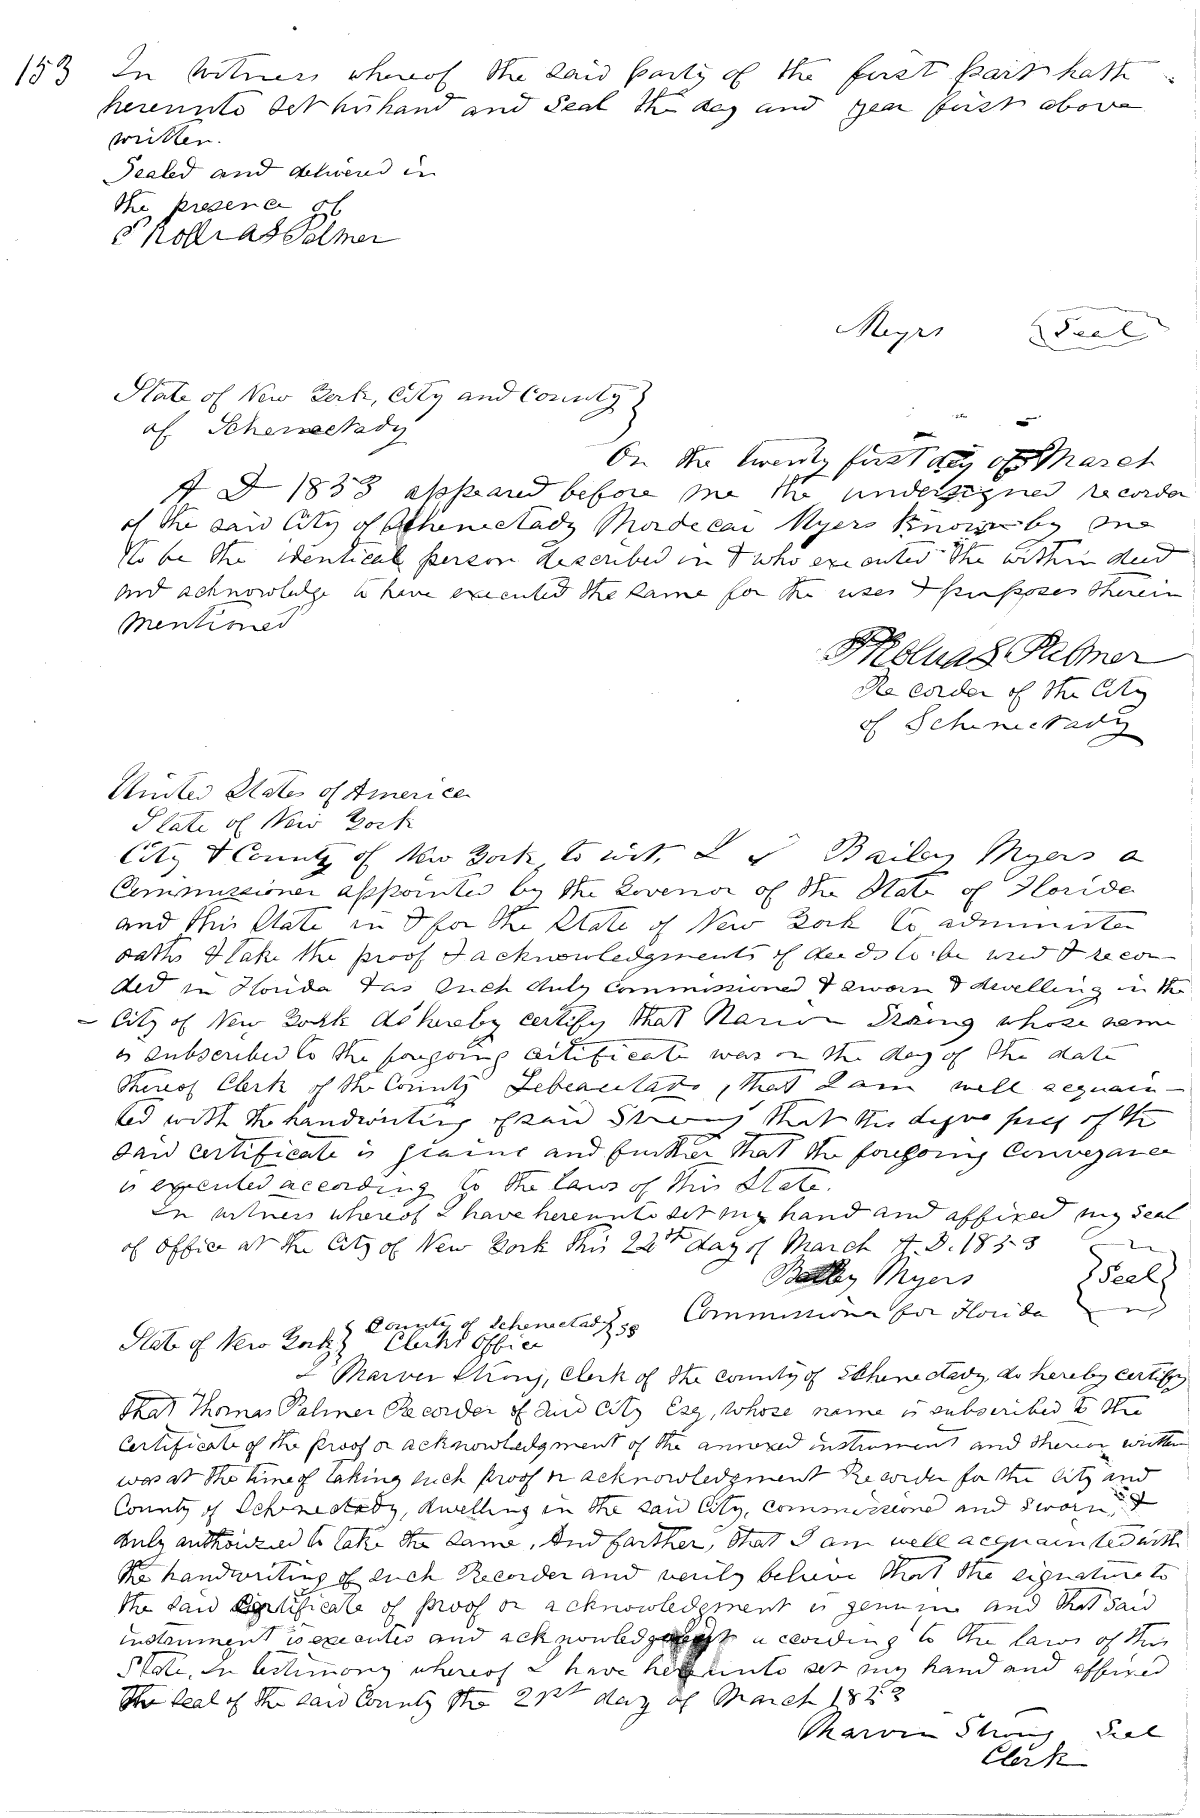 153 In witness whereof the said party of the first part hath
hereunto set his hand and seal the day and year first above
written.
Sealed and delivered in
the presence of
Palmer
Meyrs Seal
State of New York, City and County
of Schenectady
On the twenty first day of March
A D 1853 appeared before me the undersigned recorder
of the said City of Schenectady Mordecai Myers known by me
to be the identical person described in & who executed the within deed
and acknowledge to have executed the same for the uses & purposes therein
mentioned
Thomas Palmer
Recorder of the City
of Schenectady
United States of America
State of New York
City & County of New York to wit, I Bailey Myers a
Commissioner appointed by the Govenor of the State of Florida
and this State in & for the State of New York to administer
oaths & take the proof & acknowledgments of deeds to be used & recor
ded in Florida & as such duly commissioned & sworn & dwelling in the
City of New York do hereby certify that whose name
is subscribed to the foregoing certificate was on the day of the date
thereof Clerk of the County , that I am well acquain-
ted with the handwriting of said Strong that the of the
said certificate is and further that the foregoing conveyance
is executed according to the laws of this State.
In witness whereof I have hereunto set my hand and affixed my seal
of office at the City of New York this 22th day of March A.D. 1853
Bailey Myers Seal
Commissioner for Florida
State of New York } County of Schenectady } ss
Clerks Office
I Marven Strong, Clerk of the county of Schenectady do hereby certify
that Thomas Palmer Recorder of said City Esq, whose name is subscribed to the
certificate of the proof or acknowledgment of the annexed instrument and thereon written
was at the time of taking such proof or acknowledgment Recorder for the City and
County of Schenectady, dwelling in the said City, commissioned and sworn, &
duly authorized to take the same. And farther, that I am well acquainted with
the handwriting of such Recorder and verily believe that the signature to
the said certificate of proof or acknowledgment is genuine and that said
instrument is executed and according to the laws of this
State. In testimony whereof I have hereunto set my hand and affixed
the seal of the said County the 21st day of March 1853
Marvin Strong Seal
Clerk